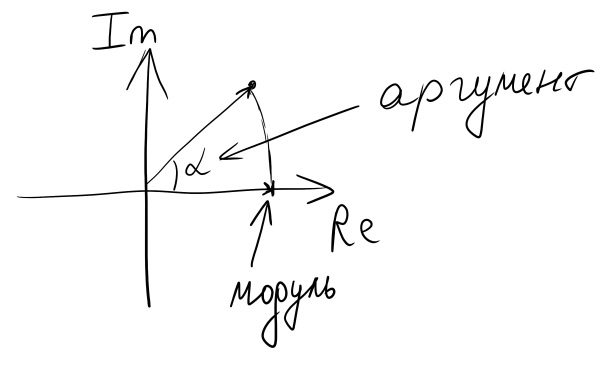 Im
аргумент
α
Re
модуль